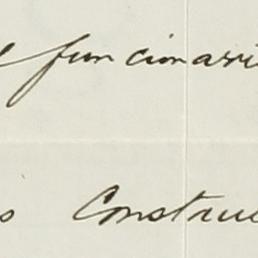 funcionari
s Constru